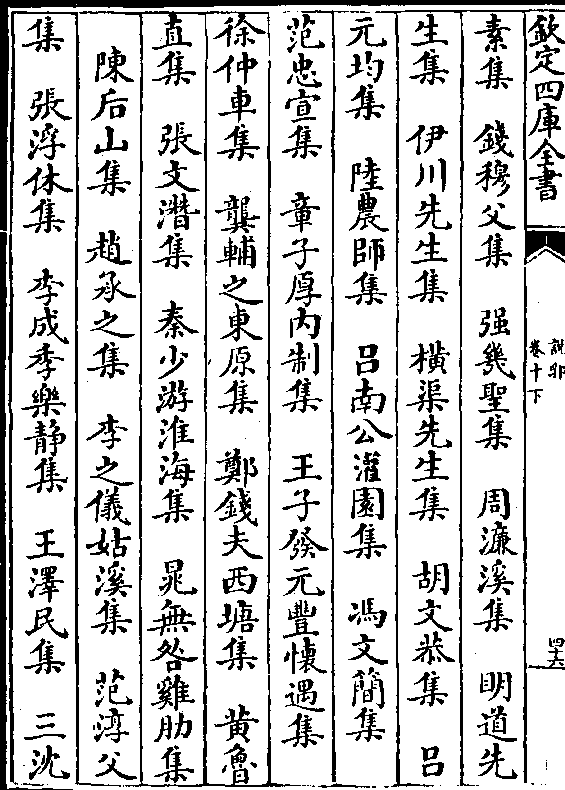 欽定四庫全書
說郛
卷十下
四十六
素集　錢穆父集　强幾聖集　周濂溪集　明道先
生集　伊川先生集　橫渠先生集　胡文恭集　呂
元均集　陸農師集　呂南公灌園集　馮文簡集
范忠宣集　章子厚內制集　王子發元豐懷遇集
徐仲車集　龔輔之東原集　鄭錢夫西塘集　黃魯
直集　張文潛集　秦少游淮海集　晁無咎雞肋集
陳后山集　趙承之集　李之儀姑溪集　范淳父
集　張浮休集　李成季樂静集　王澤民集　三沈